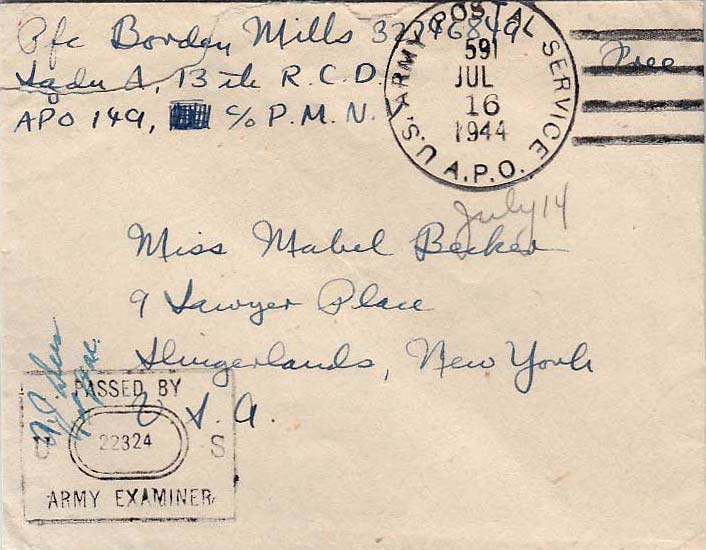 Pfc Borden Mills 32946849
Free
Hqdn A, 13th R.C.D.
APO 149, c/o P.M.N.Y.
U.S. ARMY POSTAL SERVICE
591
JUL
16
1944
A.P.O.
July 14
Miss Mabel Becker
9 Sawyer Place
Slingerlands, New York
U.S.A.
PASSED BY
U 22324 S
ARMY EXAMINER